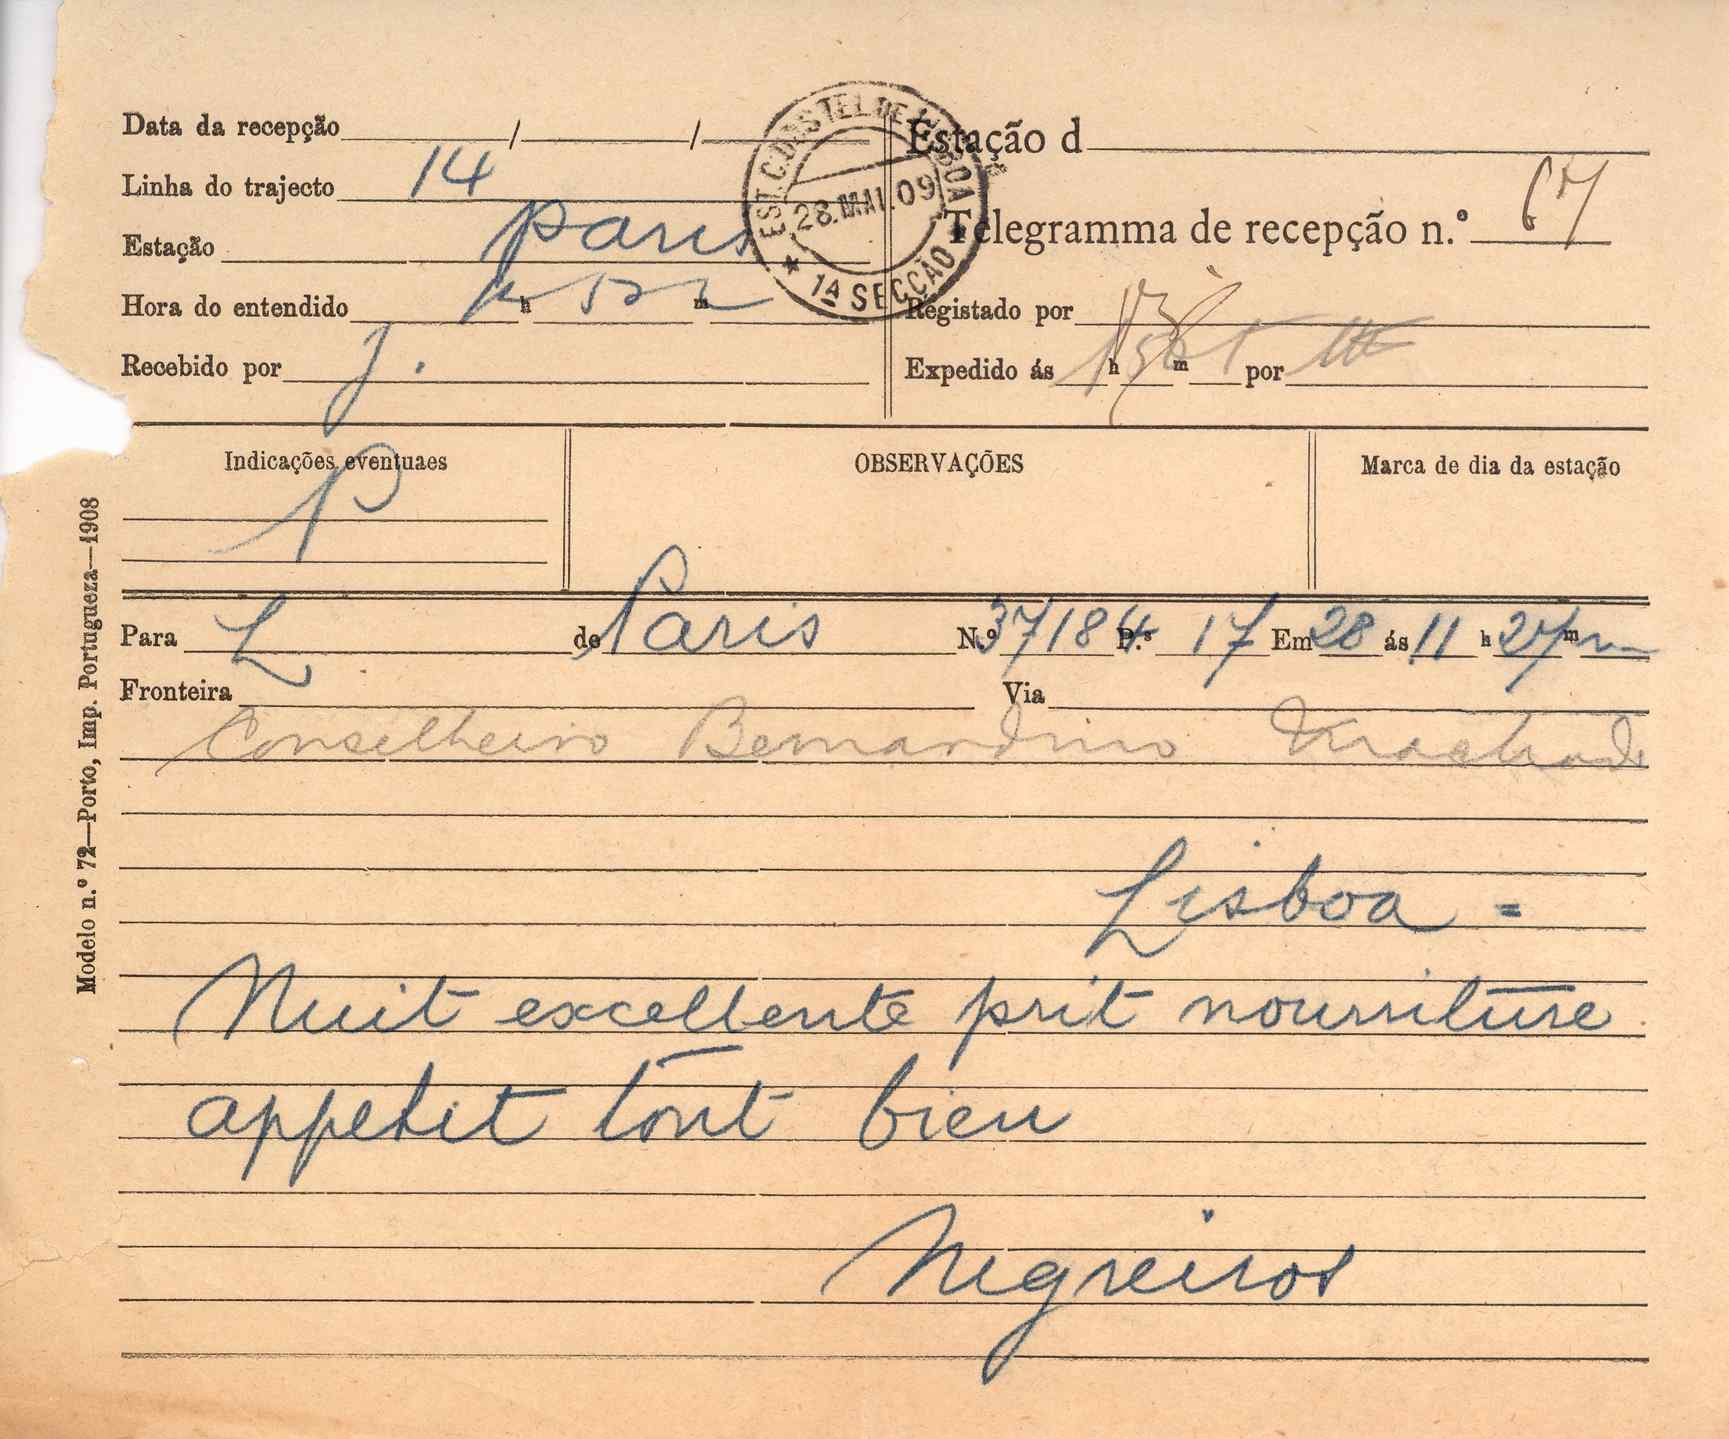 Data da recepção / /
Linha do trajecto 14
Estação Paris
Hora do entendido h m
Recebido por J.
EST. C. DOS TEL. DE LISBOA
28.MAI.09
* 1ª SECÇÃO
Estação d
Telegramma de recepção n.º 67
Registado por
Expedido ás h m por
Indicações eventuaes
P
OBSERVAÇÕES
Marca de dia da estação
Para L de Paris N.º 37184 P.s 17 Em 28 ás 11 h 27 m
Fronteira Via
Conselheiro Bernardino Machado
Lisboa =
Nuit excellente prit nourriture
appetit tout bien
Negreiros
Modelo n.º 72—Porto, Imp. Portugueza—1908